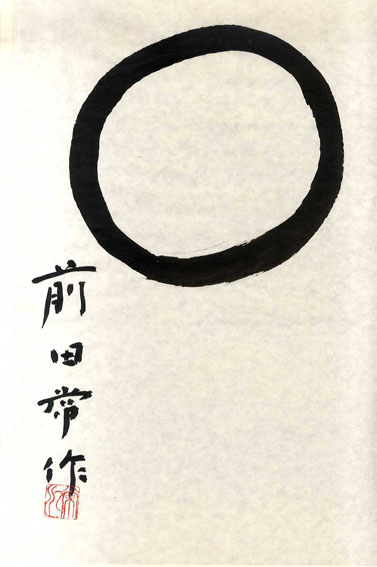 前田常作